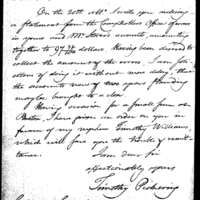 On the 20th ulto. I wrote you inclosing
a statement from the Comptrollers Office of errors
in yours and Mr. accounts, amounting
together to 97 dollars. Having been desired to
collect the amount of the errors, I am soli-
citous of doing it without more delay; that
the accounts now of two years standing
may be brought to a close.
Having occasion for a small sum at
Boston, I have given an order on you in
favour of my nephew Timothy Williams
which will save you the trouble of remit-
tance.
I am dear sir
affectionately yours
Timothy Pickering